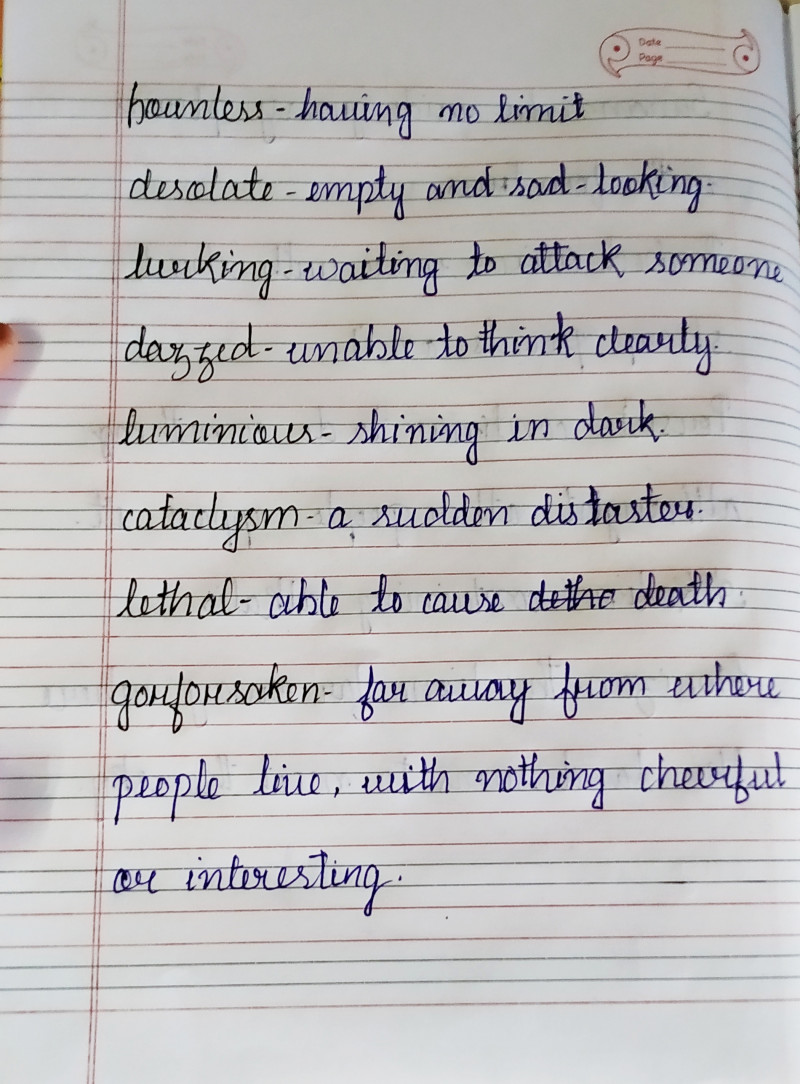 Date
Page
bounless - having no limit
desolate - empty and sad - looking.
lurking - waiting to attack someone
dazzed - unable to think clearly.
luminious - shining in dark.
cataclysm - a sudden distaster.
lethal - able to cause detho death.
gorforsaken - far away from where
people live, with nothing cheerful
or interesting.